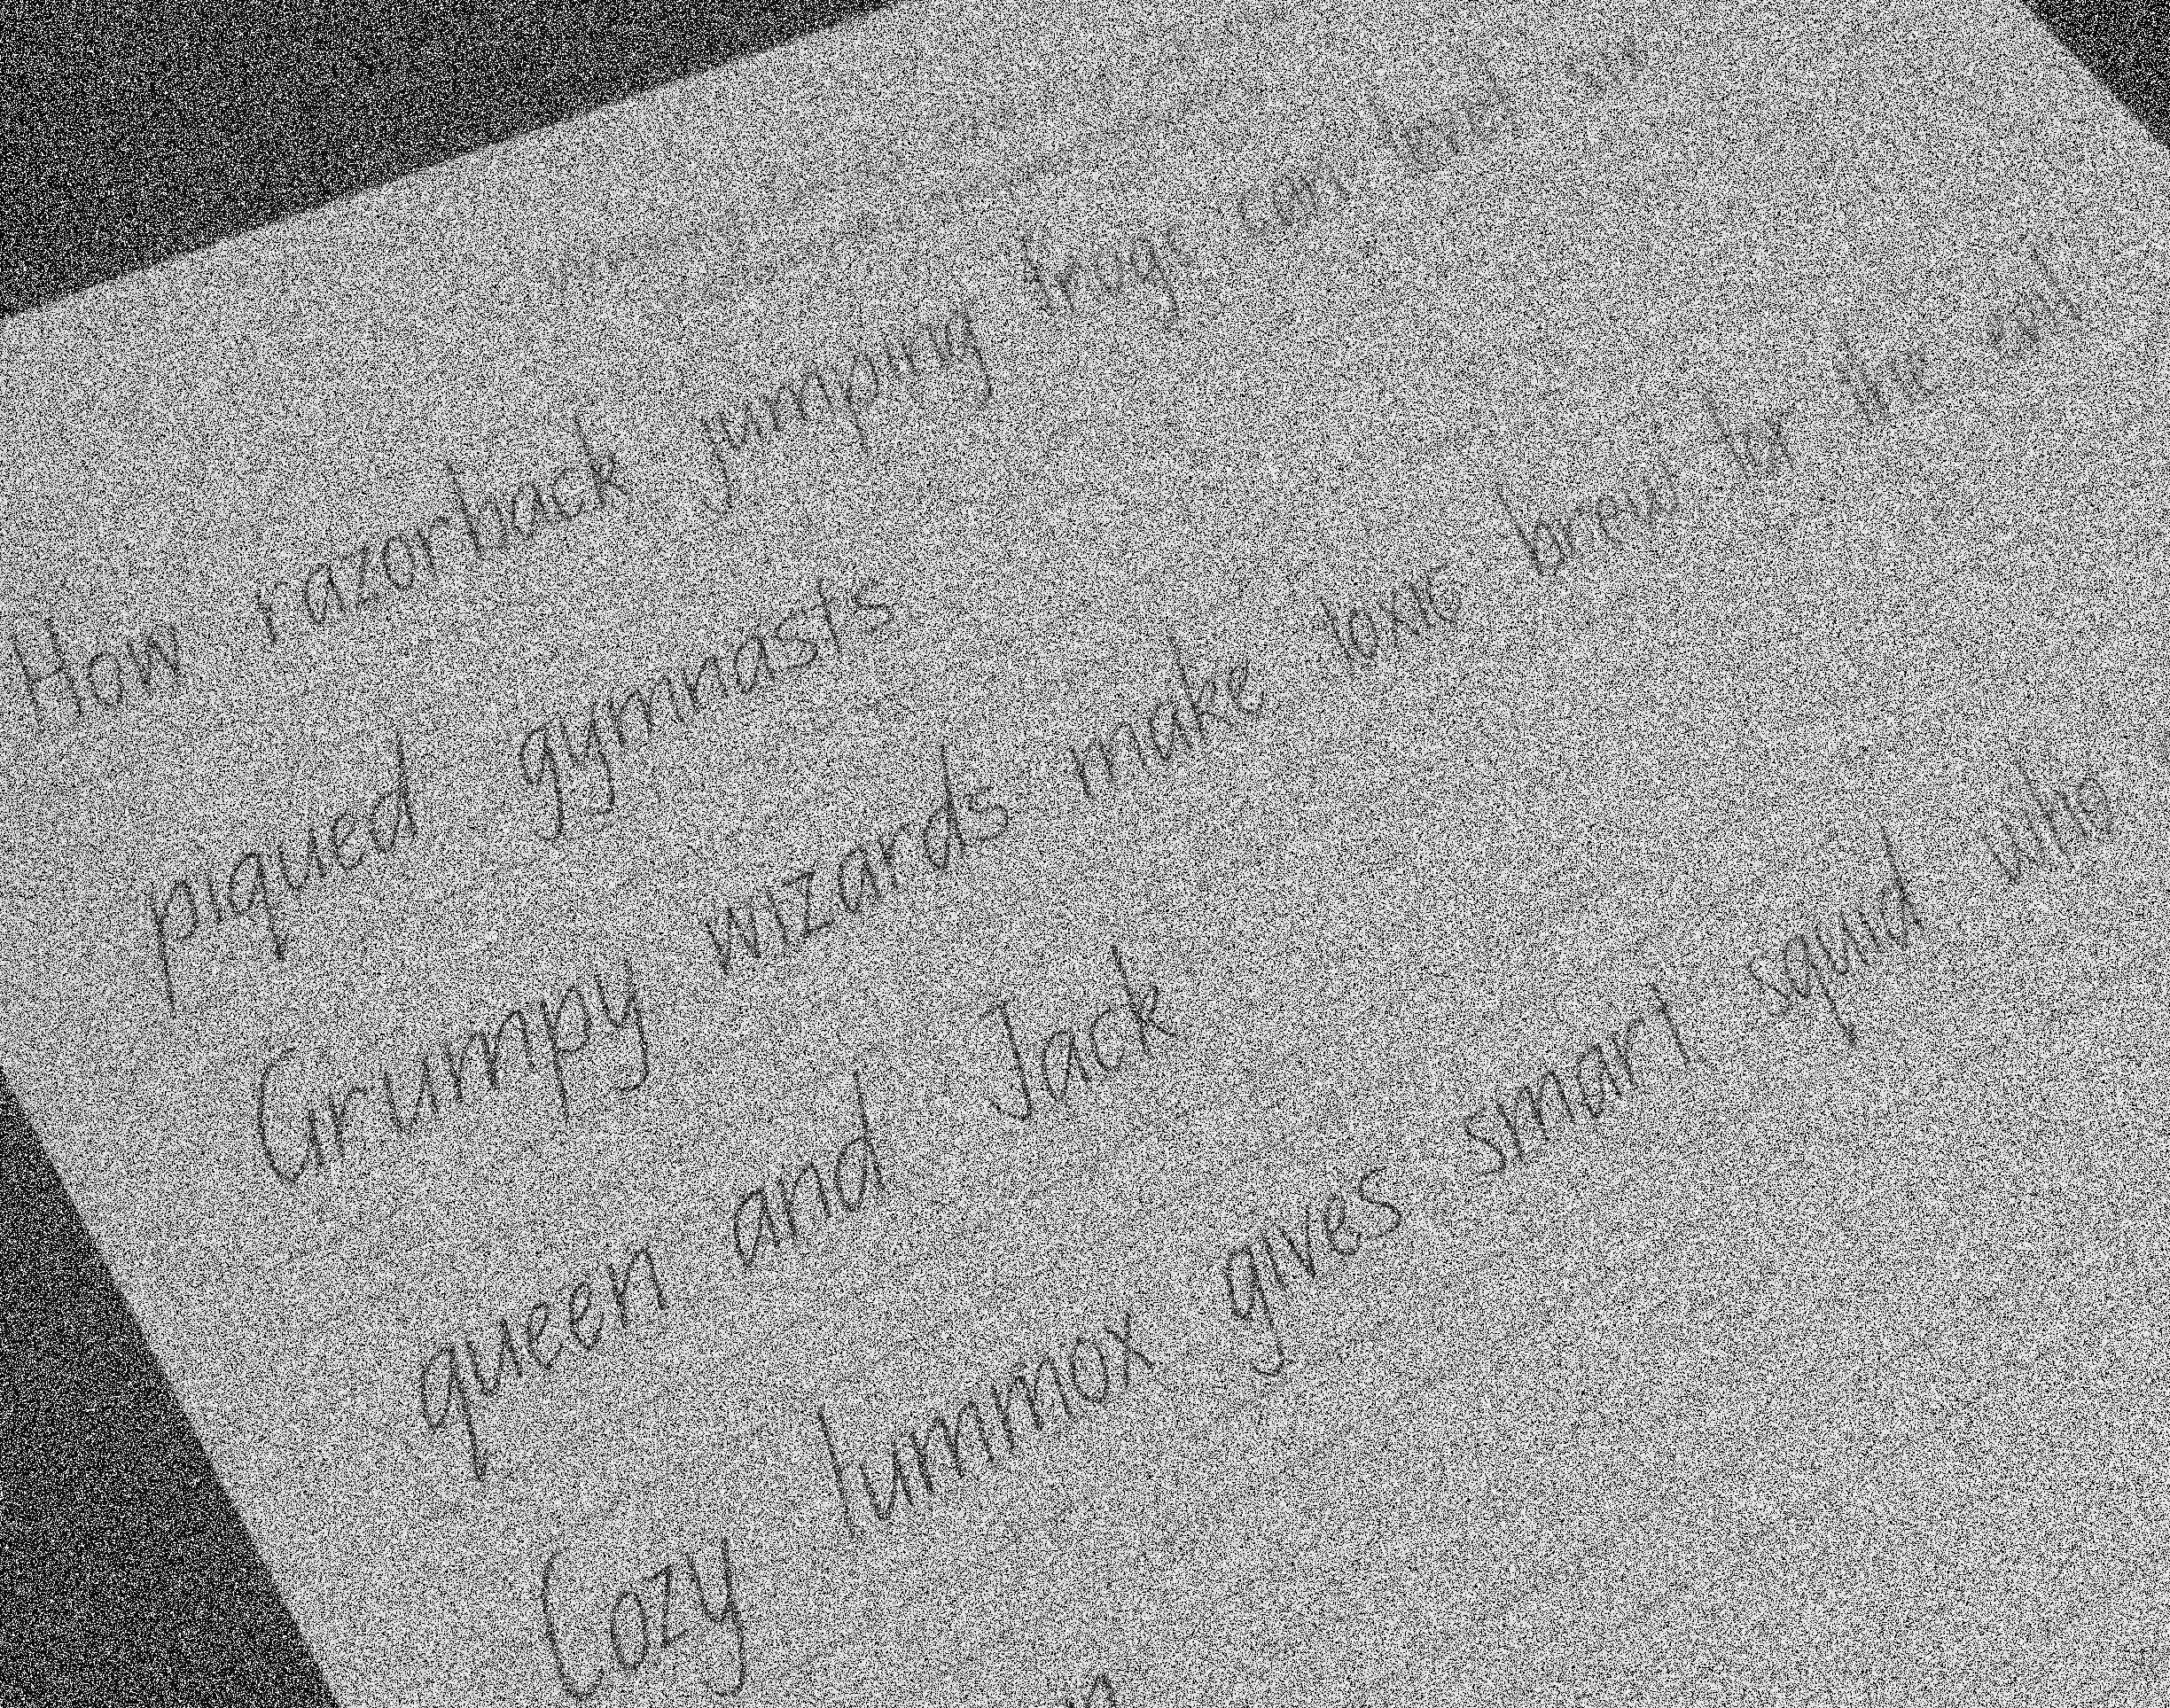 How razorback jumping frogs can level six
piqued gymnasts
Grumpy wizards make toxic brew for the evil
queen and Jack
Cozy lummox gives smart squid who